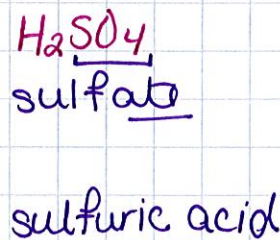 H₂SO₄
sulfate
sulfuric acid